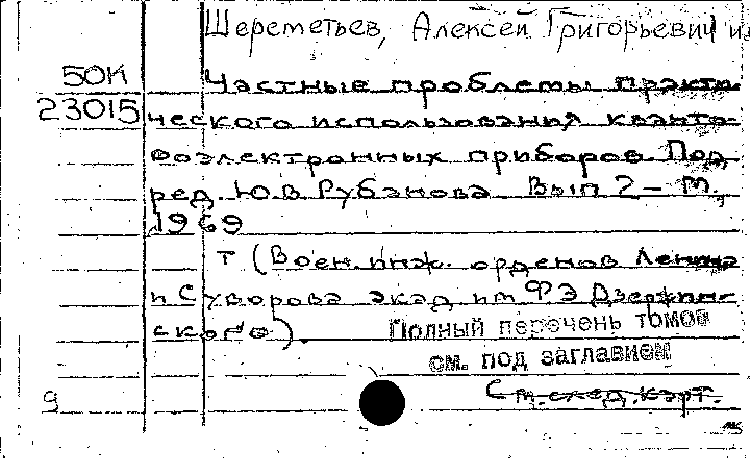 Шереметьев, Алексей Григорьевич и
50К Частные проблемы практи-
23015 ческого использования кванто-
воэлектронных приборов. Под
ред. Ю.В. Рубанова Вып 2 – М.,
1969
т (Воен. инж. орденов Ленина
и Суворова акад им Ф.Э. Дзержин-
ского).
Полный перечень томов
см. под заглавием
См. след. карт.
9